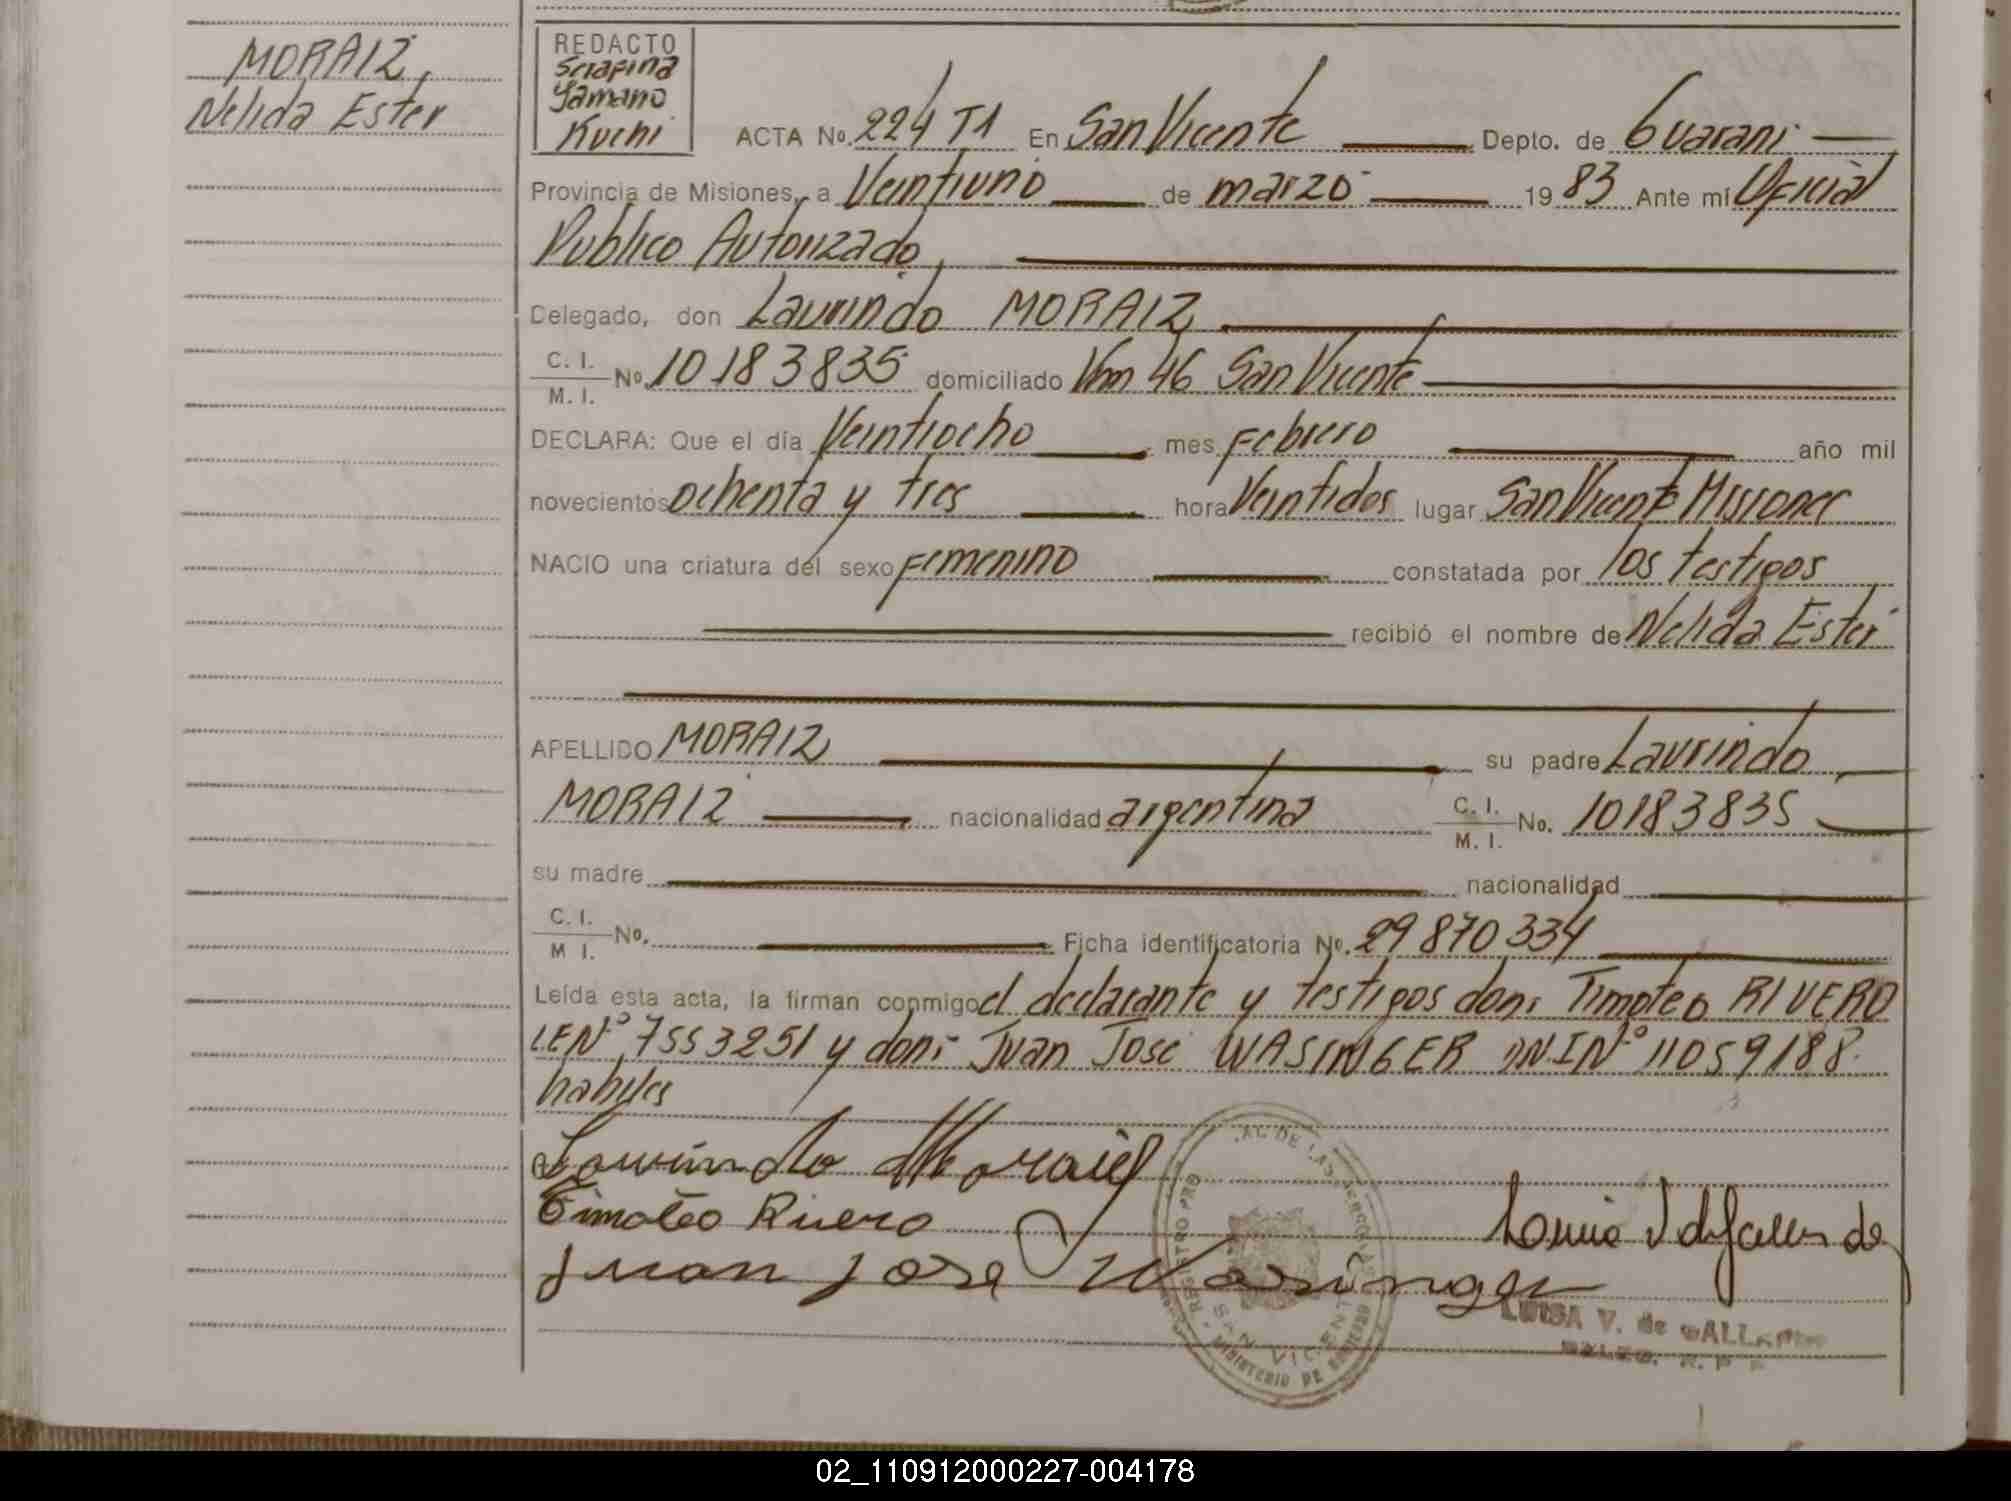 MORAIZ,
Nelida Ester
REDACTO
Serafina
Yamano
Kuchi
ACTA No. 224 T1 En San Vicente Depto. de Guarani
Provincia de Misiones, a Veintiuno de marzo 1983 Ante mí Oficial
Publico Autorizado,
Delegado, don Laurindo MORAIZ
C. I.
M. I. No. 10183835 domiciliado Km 46 San Vicente
DECLARA: Que el día Veintiocho mes Febrero año mil
novecientos ochenta y tres hora Veintidos lugar San Vicente Misiones
NACIO una criatura del sexo Femenino constatada por los testigos
recibió el nombre de Nelida Ester
APELLIDO MORAIZ su padre Laurindo
MORAIZ nacionalidad argentina C. I. M. I. No. 10183835
su madre nacionalidad
C. I. M I. No. Ficha identificatoria No. 29870334
Leída esta acta, la firman conmigo el declarante y testigos don: Timoteo RIVERO
L.E.Nº 7553251 y don: Juan Jose WASINGER DNI Nº 11059188.
habiles
Laurindo Moraiz
Timoteo Rivero
Juan Jose Wasinger
LUISA V. de GALLARDO
SAN VICENTE
MINISTERIO DE
02_110912000227-004178